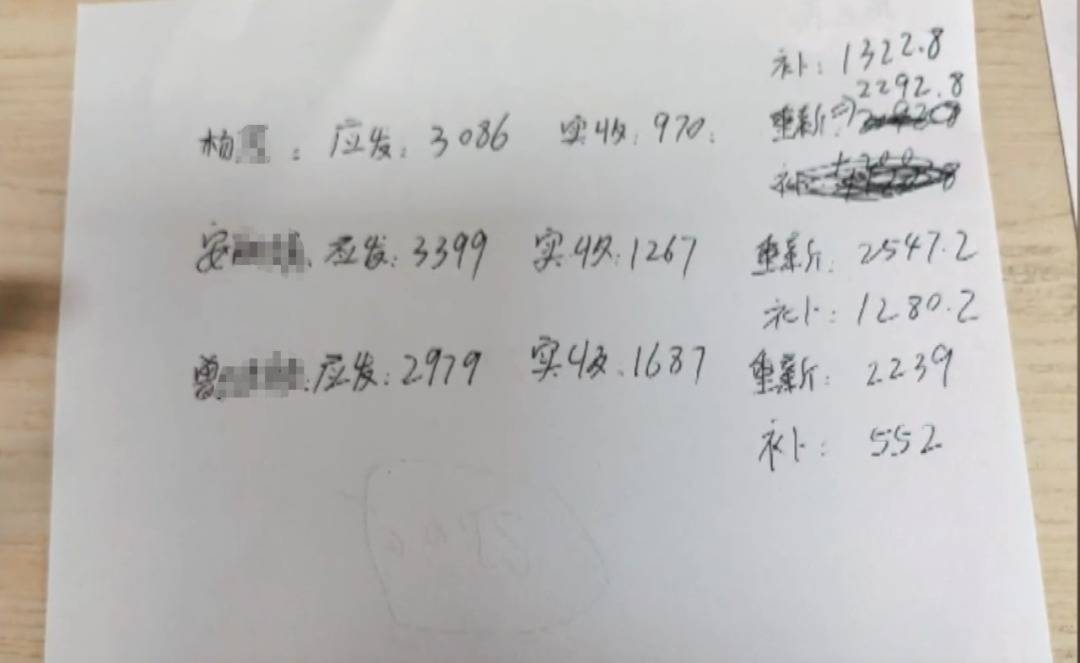 补：1322.8
2292.8
杨 ： 应发：3086 实收：970. 重新：
补：
安 、应发：3399 实收：1267 重新：2547.2
补：1280.2
曾 ：应发：2979 实收、1687 重新：2239
补：552